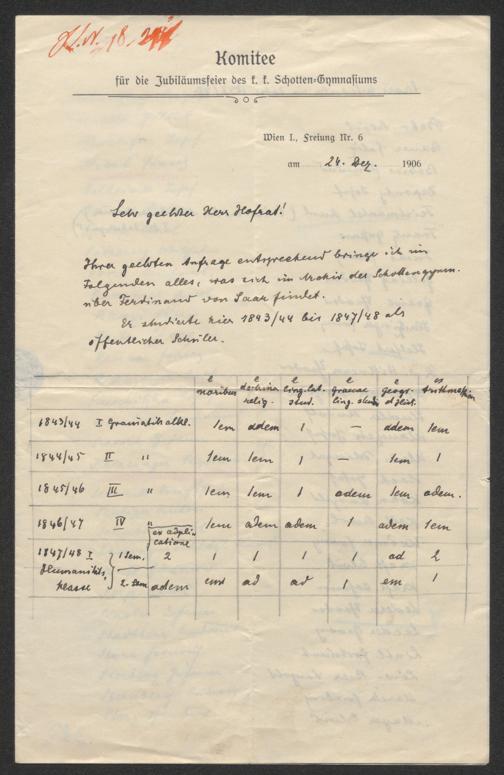 Komitee
für die Jubiläumsfeier des k. k. Schotten=Gymnasiums
Wien I., Freiung Nr. 6
am 24. Dez. 1906
Sehr geehrter Herr Hofrat!
Ihrer geehrten Anfrage entsprechend bringe ich im
Folgenden alles, was sich im Archiv des Schottengymn.
über Ferdinand von Saar findet.
Er studierte hier 1843/44 bis 1847/48 als
öffentlicher Schüler.
e moribus e doctrina relig. e ling. lat. stud. e graecae ling. studio e Geogr. et Hist. ex arithmetica
1843/44 I Grammatikalkl. 1em adem 1 — adem 1em
1844/45 II " 1em 1em 1 — 1em 1
1845/46 III " 1em 1em 1 adem 1em adem.
1846/47 IV " 1em adem adem 1 adem 1em
ex applicatione
1847/48 I Humanitätsklasse 1 Sem. 2 1 1 1 1 ad 2
2. Sem adem emi ad ad 1 em 1